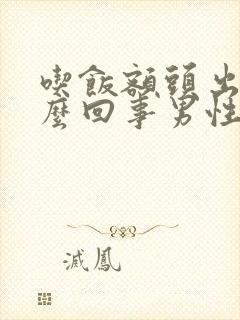 喫飯額頭出
麼回事男性
滅鳳